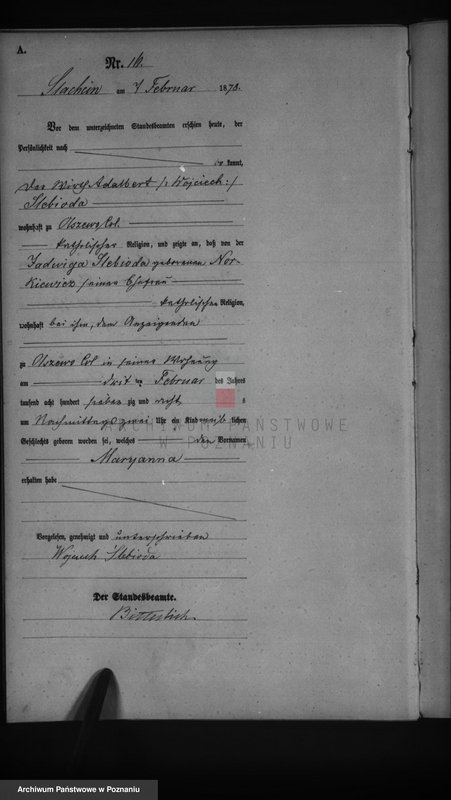 A.
Nr. 16.
Stachein am 7 Februar 1878.
Vor dem unterzeichneten Standesbeamten erschien heute, der
Persönlichkeit nach
kannt,
der Wirth Adalbert /: Wojciech :/
Slebioda
wohnhaft zu Olszewo Col.
katholischer Religion, und zeigte an, daß von der
Jadwiga Slebioda geborenen Nor-
kiewicz seiner Ehefrau
katholischer Religion,
wohnhaft bei ihm, dem Anzeigenden
zu Olszewo Col in seiner Wohnung
am Februar des Jahres
tausend acht hundert sieben zig und acht
um Nachmittags zwei Uhr ein Kind weib lichen
Geschlechts geboren worden sei, welches den Vornamen
Maryanna
erhalten habe
Vorgelesen, genehmigt und unterschrieben
Wojciech Slebioda
Der Standesbeamte.
ARCHIWUM PAŃSTWOWE
W POZNANIU
Archiwum Państwowe w Poznaniu